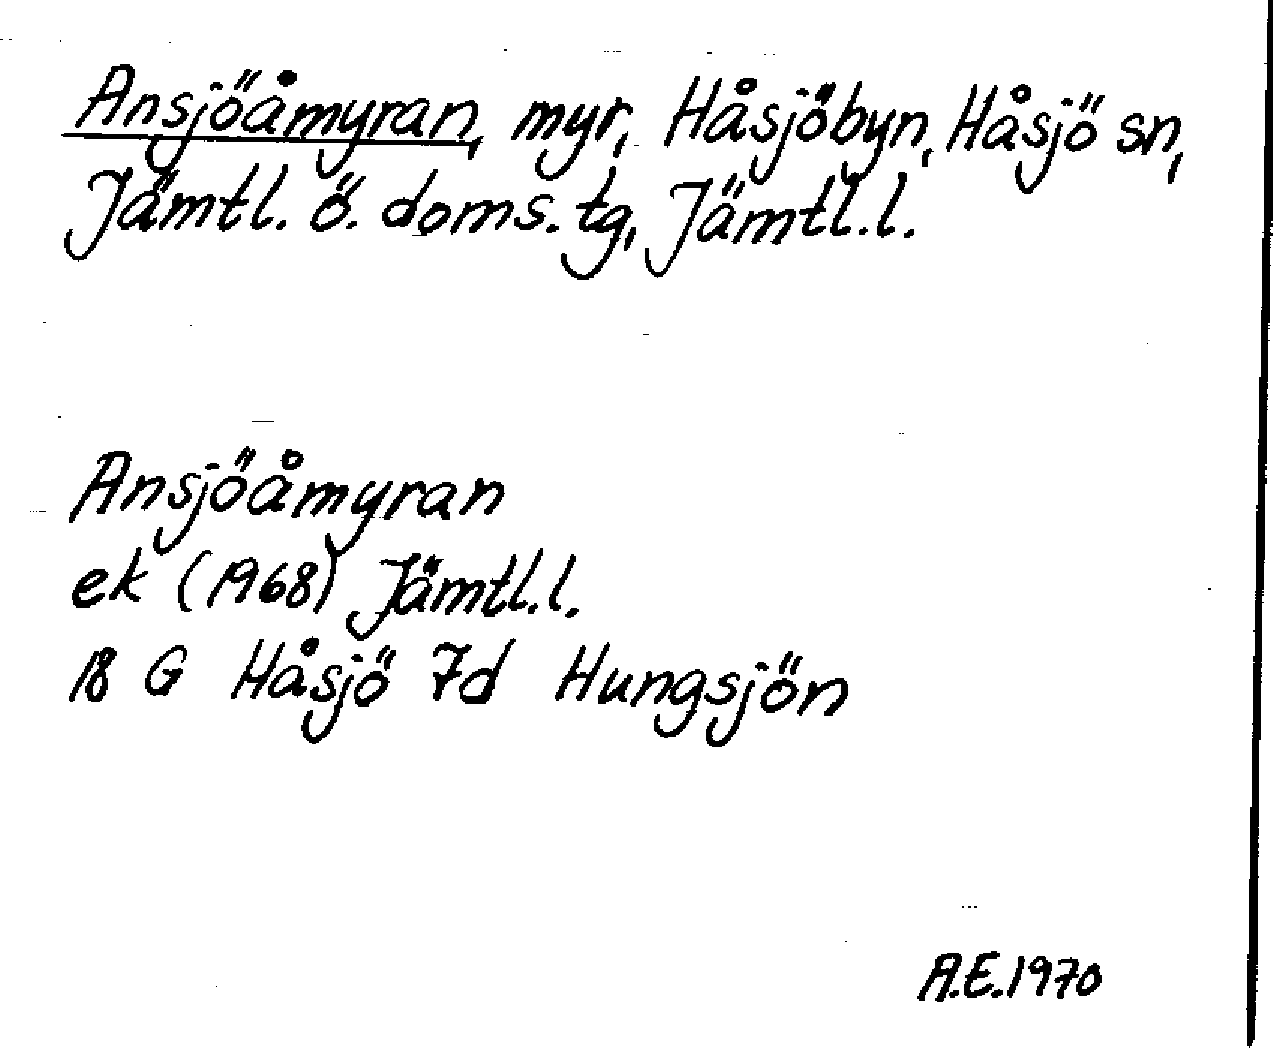 Ansjöåmyran, myr, Håsjöbyn, Håsjö sn,
Jämtl. ö. doms. tg, Jämtl.l.
Ansjöåmyran
ek (1968) Jämtl.l.
18 G Håsjö 7d Hungsjön
A.E.1970